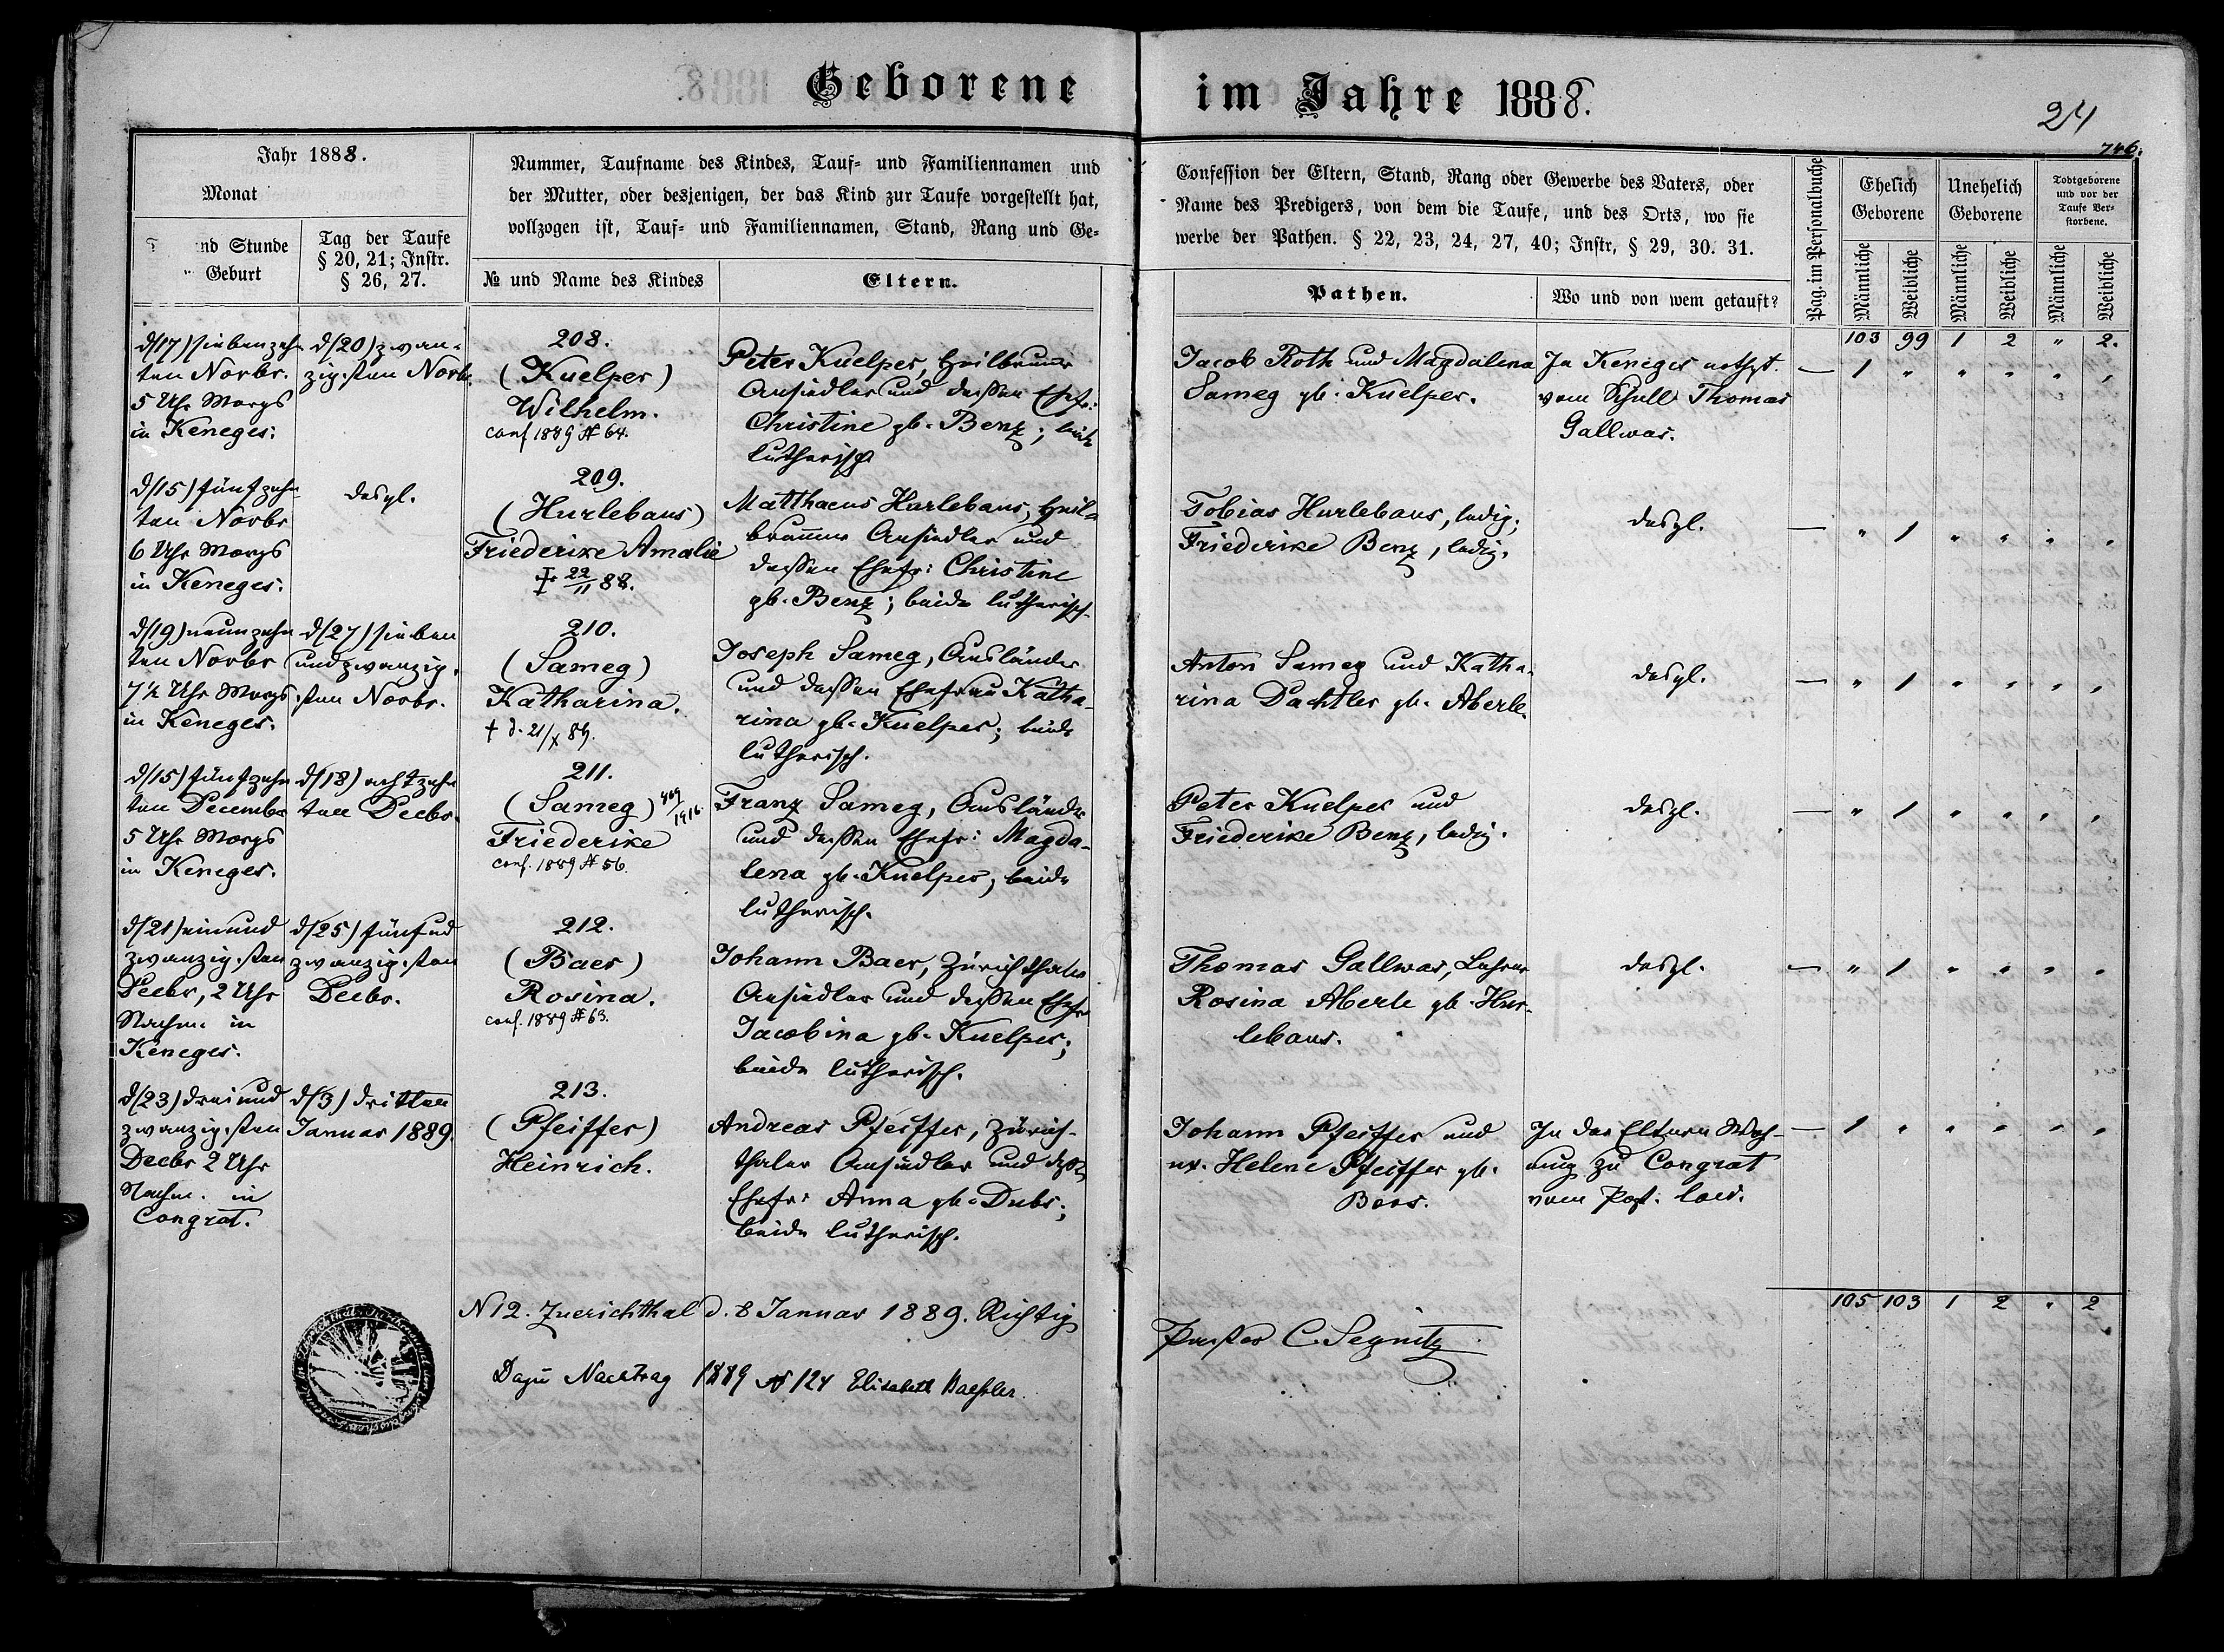 Geborene im Jahre 1888.
24
746.
Jahr 1888.
Monat
nd Stunde
Geburt
Tag der Taufe
§ 20, 21; Instr.
§ 26, 27.
Nummer, Taufname des Kindes, Tauf- und Familiennamen und
der Mutter, oder desjenigen, der das Kind zur Taufe vorgestellt hat,
vollzogen ist, Tauf- und Familiennamen, Stand, Rang und Ge-
№ und Name des Kindes
Eltern.
Confession der Eltern, Stand, Rang oder Gewerbe des Vaters, oder
Name des Predigers, von dem die Taufe, und des Orts, wo sie
werbe der Pathen. § 22, 23, 24, 27, 40; Instr, § 29, 30. 31.
Pathen.
Wo und von wem getauft?
Pag. im Personalbuche
Ehelich
Geborene
Unehelich
Geborene
Todtgeborene
und vor der
Taufe Ver-
storbene.
Männliche
Weibliche
Männliche
Weibliche
Männliche
Weibliche
103 99 1 2 " 2.
d/17) siebenzehn
ten Novbr.
5 Uhr Morgs
in Keneges:
d/20) zwan-
zigsten Novbr.
208.
(Kuelper)
Wilhelm.
conf 1889 № 64.
Peter Kuelper, Heilbrunner
Ansiedler und dessen Ehefr:
Christine gb. Benz; beide
lutherisch
Jacob Roth und Magdalena
Sameg gb. Kuelper.
In Keneges nothgt.
vom Schull Thomas
Gallwas.
— 1 " " " " "
d/15) fünfzehn
ten Novbr
6 Uhr Morgs
in Keneges:
desgl.
209.
(Hurlebaus)
Friederike Amalie
† 22/11 88.
Matthaeus Hurlebaus, Heil-
brunner Ansiedler und
dessen Ehefr: Christine
gb. Benz; beide lutherisch.
Tobias Hurlebaus, ledig;
Friederike Benz, ledig.
desgl.
— " 1 " " " "
d/19) neunzehn
ten Novbr
7½ Uhr Morgs
in Keneges.
d/27) sieben
undzwanzig-
sten Novbr.
210.
(Sameg)
Katharina.
† d. 21/X 89.
Joseph Sameg, Ausländer
und dessen Ehefrau Katha-
rina gb. Kuelper; beide
lutherisch.
Anton Sameg und Katha-
rina Dachtler gb. Aberle.
desgl.
— " 1 " " " "
d/15) fünfzehn
ten December
5 Uhr Morgs
in Keneges.
d/18) achtzehn
ten Decbr.
211.
(Sameg) 409/1916.
Friederike
conf. 1889 № 56.
Franz Sameg, Ausländer
und dessen Ehefr: Magda-
lena gb. Kuelper; beide
lutherisch.
Peter Kuelper und
Friederike Benz, ledig.
desgl.
— " 1 " " " "
d/21) einund
zwanzigsten
Decbr, 2 Uhr
Nachm. in
Keneges.
d/25) fünfund
zwanzigsten
Decbr.
212.
(Baer)
Rosina.
conf. 1889 № 63.
Johann Baer, Zürichthaler
Ansiedler und dessen Ehefr
Jacobina gb. Kuelper;
beide lutherisch.
Thomas Gallwas, Lehrer
Rosina Aberle gb. Hur-
lebaus.
desgl.
— " 1 " " " "
d/23) dreiund
zwanzigsten
Decbr 2 Uhr
Nachm. in
Congrat.
d/3) dritten
Januar 1889.
213.
(Pfeiffer)
Heinrich.
Andreas Pfeiffer, Zürich-
thaler Ansiedler und dess.
Ehefr: Anna gb. Dubs;
beide lutherisch.
Johann Pfeiffer und
ux. Helene Pfeiffer gb.
Boos.
In der Eltern Woh-
nung zu Congrat
vom Past. loci.
— 1 " " " " "
105 103 1 2 " 2
N 12. Zuerichthal d. 8 Januar 1889. Richtig
Pastor C. Segnitz
Dazu Nachtrag 1889 № 124 Elisabeth Kaehler.